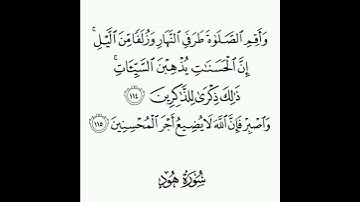 وَأَقِمِ الصَّلَوٰةَ طَرَفَيِ النَّهَارِ وَزُلَفًا مِّنَ الَّيْلِ ۚ
إِنَّ الْحَسَنَٰتِ يُذْهِبْنَ السَّيِّئَاتِ ۚ
ذَٰلِكَ ذِكْرَىٰ لِلذَّٰكِرِينَ ١١٤
وَاصْبِرْ فَإِنَّ اللَّهَ لَا يُضِيعُ أَجْرَ الْمُحْسِنِينَ ١١٥
سُورَةُ هُودٍ